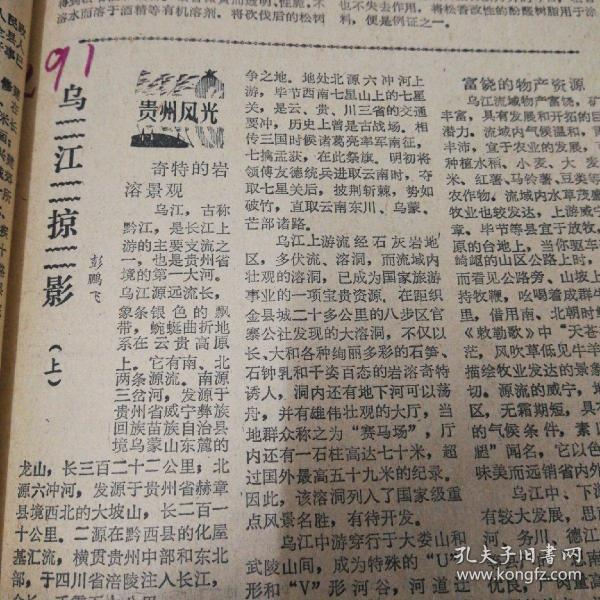 溶水而溶于酒精等有机溶剂。将次伐后的松树
也不失去作用。将松香改性的酚醛树脂用于涂
料，便是例证之一。
291
乌江掠影
（上）
彭鹏飞
贵州风光
奇特的岩
溶景观
乌江，古称
黔江，是长江上
游的主要支流之
一，也是贵州省
境的第一大河。
乌江源远流长，
象条银色的飘
带，蜿蜒曲折地
系在云贵高原
上。它有南、北
两条源流。南源
三岔河，发源于
贵州省威宁彝族
回族苗族自治县
境乌蒙山东麓的
龙山，长三百二十二公里；北
源六冲河，发源于贵州省赫章
县境西北的大坡山，长二百一
十公里。二源在黔西县的化屋
基汇流，横贯贵州中部和东北
部，于四川省涪陵注入长江，
争之地。地处北源六冲河上
游，毕节西南七星山上的七星
关，是云、贵、川三省的交通
要冲，历史上曾是古战场。相
传三国时候诸葛亮率军南征，
七擒孟获，在此祭旗。明初将
领傅友德统兵进取云南时，夺
取七星关后，披荆斩棘，势如
破竹，直取云南东川、乌蒙、
芒部诸路。
乌江上游流经石灰岩地
区，多伏流、溶洞，而流域内
壮观的溶洞，已成为国家旅游
事业的一项宝贵资源。在距织
金县城二十多公里的八步区官
寨公社发现的大溶洞，不仅以
长、大和各种绚丽多彩的石笋、
石钟乳和千姿百态的岩溶奇特
诱人，洞内还有地下河可以荡
舟，并有雄伟壮观的大厅，当
地群众称之为“赛马场”，厅
内还有一石柱高达七十米，超
过国外最高五十九米的纪录。
因此，该溶洞列入了国家级重
点风景名胜，有待开发。
乌江中游穿行于大娄山和
武陵山间，成为特殊的“U”
形和“V”形河谷，河道迂
富饶的物产资源
乌江流域物产富饶，矿
丰富，具有发展和开拓的巨
潜力。流域内气候温和，雨
丰沛，宜于农业的发展，可
种植水稻、小麦、大麦
米、红薯、马铃薯、豆类等
农作物。流域内水草茂盛
牧业也较发达，上游威宁
章、毕节等县宜于放牧，
原的台地上，当你驱车
崎岖的山区公路上时，
而看见公路旁、山坡上
持牧鞭，吆喝着成群牛
里，借用南、北朝时鲜
《敕勒歌》中“天苍
茫，风吹草低见牛羊
描绘牧业发展的景象
切。源流的威宁，地
区，无霜期短，具有
的气候条件，素以
腿”闻名，它以色
味美而远销省内外
乌江中、下游
有较大发展，思南
河、务川、德江
孔夫子旧书网
www.kongfz.com